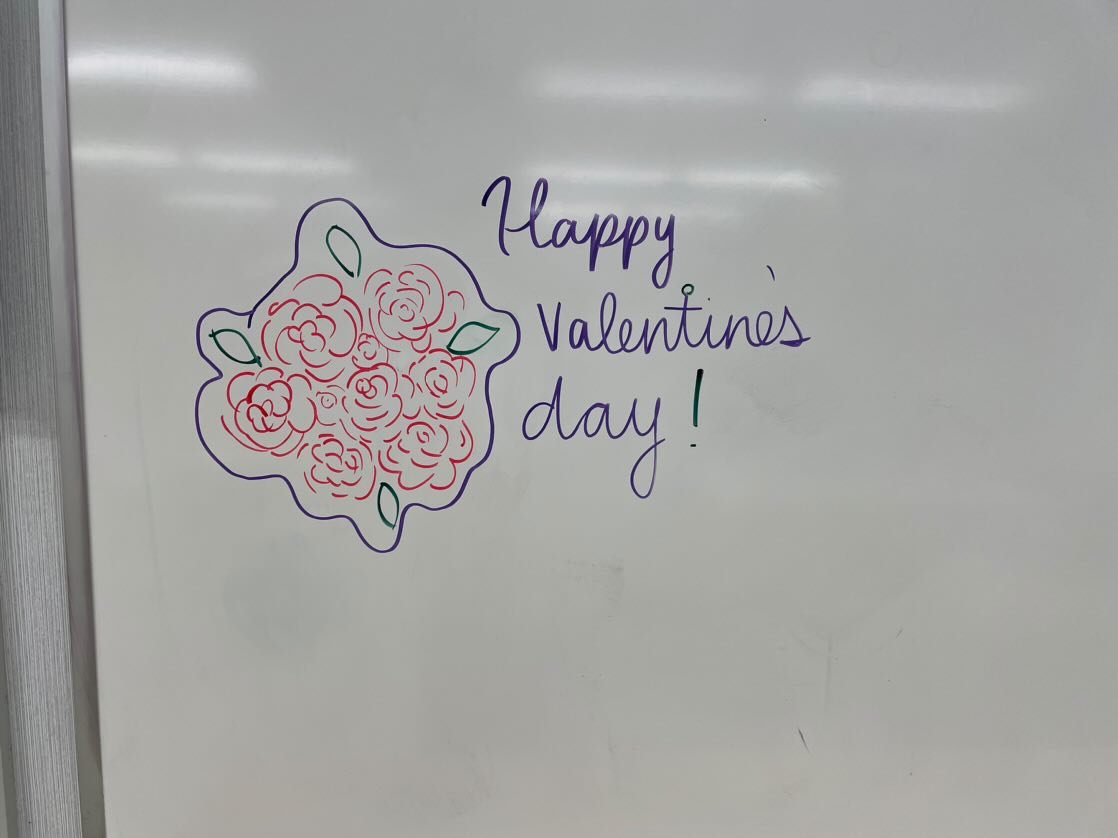 Happy
Valentine's
day!